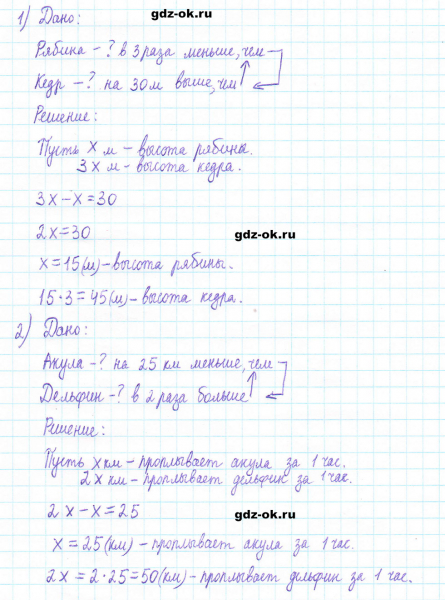 gdz-ok.ru
1) Дано:
Рябина – ? в 3 раза меньше, чем
Кедр – ? на 30 м выше, чем
Решение:
Пусть x м – высота рябины.
3x м – высота кедра.
3x – x = 30
2x = 30
gdz-ok.ru
x = 15(м) – высота рябины.
15 · 3 = 45(м) – высота кедра.
2) Дано:
Акула – ? на 25 км меньше, чем
Дельфин – ? в 2 раза больше
Решение:
Пусть x км – проплывает акула за 1 час.
2x км – проплывает дельфин за 1 час.
2x – x = 25
gdz-ok.ru
x = 25(км) – проплывает акула за 1 час.
2x = 2 · 25 = 50(км) – проплывает дельфин за 1 час.